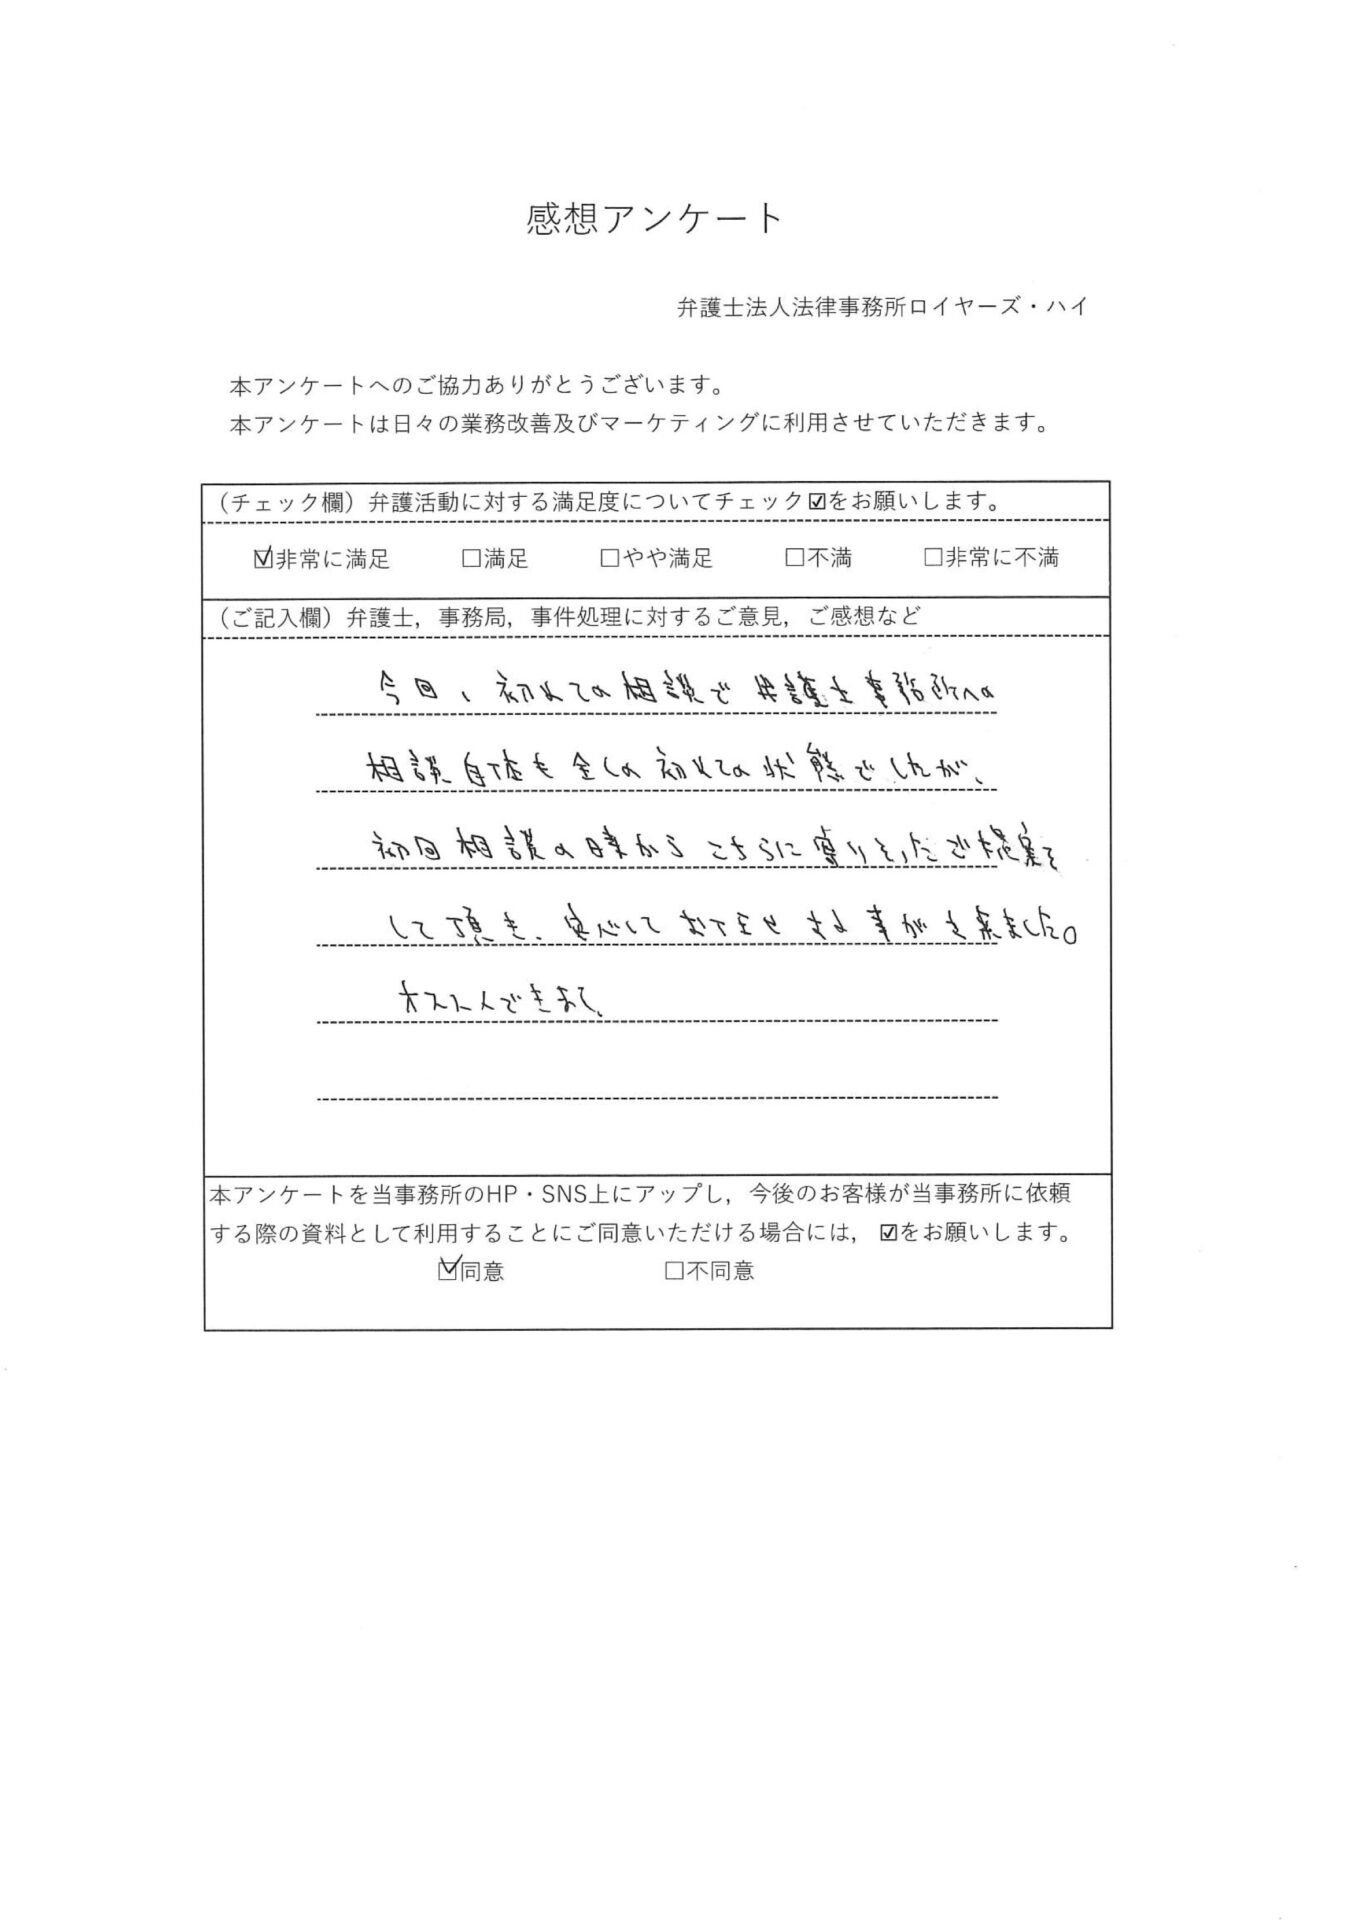 感想アンケート
弁護士法人法律事務所ロイヤーズ・ハイ
本アンケートへのご協力ありがとうございます。
本アンケートは日々の業務改善及びマーケティングに利用させていただきます。
（チェック欄）弁護活動に対する満足度についてチェック☑をお願いします。
☑非常に満足 □満足 □やや満足 □不満 □非常に不満
（ご記入欄）弁護士，事務局，事件処理に対するご意見，ご感想など
今回、初めての相談で弁護士事務所への
相談自体も全くの初めての状態でしたが、
初回相談の時からこちらに寄りそったご提案を
して頂き、安心してお任せする事が出来ました。
オススメできます。
本アンケートを当事務所のHP・SNS上にアップし，今後のお客様が当事務所に依頼
する際の資料として利用することにご同意いただける場合には，☑をお願いします。
☑同意 □不同意